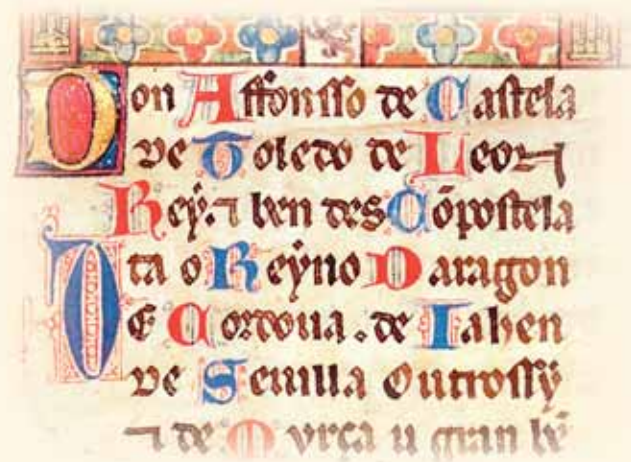 Don Affonsso de Castela
de Toledo de Leon
Rey. ⁊ ben des Cõpostela
ta o Reyno Daragon
De Cordoua. de Iahen
de Seuilla Outrossy
⁊ de Murça u gran bẽ